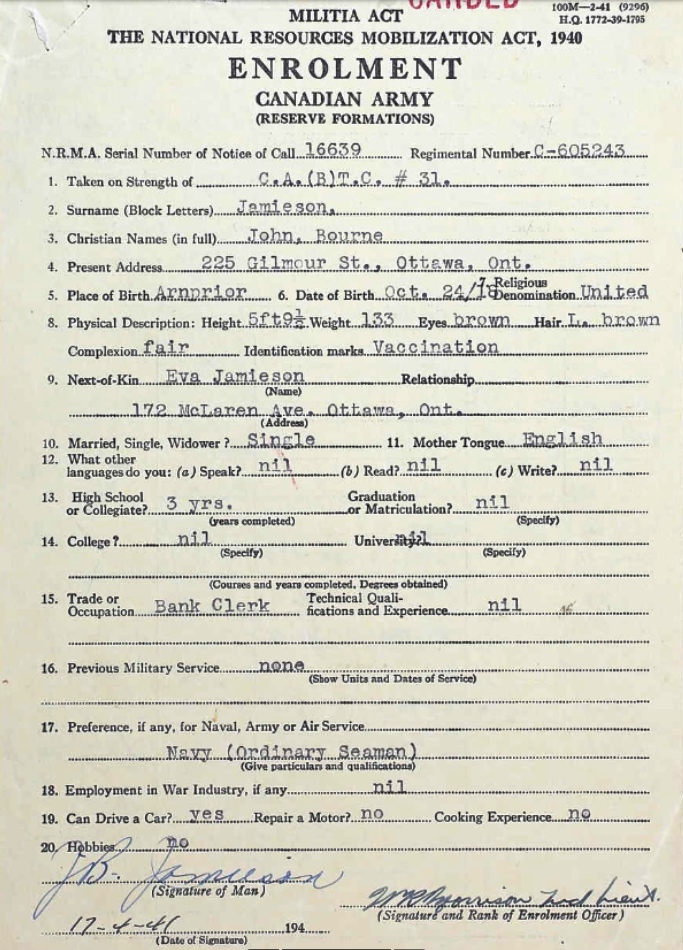 CARDED
100M—2-41 (9296)
H.Q. 1772-39-1795
MILITIA ACT
THE NATIONAL RESOURCES MOBILIZATION ACT, 1940
ENROLMENT
CANADIAN ARMY
(RESERVE FORMATIONS)
N.R.M.A. Serial Number of Notice of Call 16639 Regimental Number C-605243
1. Taken on Strength of C.A.(B)T.C. # 31.
2. Surname (Block Letters) Jamieson,
3. Christian Names (in full) John, Bourne
4. Present Address 225 Gilmour St., Ottawa, Ont.
5. Place of Birth Arnprior 6. Date of Birth Oct. 24/18 7. Religious Denomination United
8. Physical Description: Height 5ft9½ Weight 133 Eyes brown Hair L. brown
Complexion fair Identification marks Vaccination
9. Next-of-Kin Eva Jamieson Relationship
(Name)
172 McLaren Ave. Ottawa, Ont.
(Address)
10. Married, Single, Widower? Single 11. Mother Tongue English
12. What other languages do you: (a) Speak? nil (b) Read? nil (c) Write? nil
13. High School or Collegiate? 3 yrs. Graduation or Matriculation? nil
(years completed) (Specify)
14. College? nil University? nil
(Specify) (Specify)
(Courses and years completed, Degrees obtained)
15. Trade or Occupation Bank Clerk Technical Qualifications and Experience nil
16. Previous Military Service none
(Show Units and Dates of Service)
17. Preference, if any, for Naval, Army or Air Service
Navy (Ordinary Seaman)
(Give particulars and qualifications)
18. Employment in War Industry, if any nil
19. Can Drive a Car? yes Repair a Motor? no Cooking Experience no
20. Hobbies no
J.B. Jamieson
(Signature of Man)
Morrison 2nd Lieut.
(Signature and Rank of Enrolment Officer)
17-4-41 194
(Date of Signature)